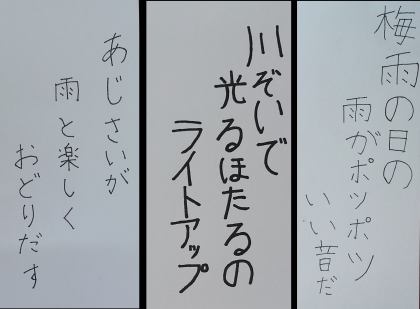 梅雨の日の
雨がポツポツ
いい音だ
川ぞいで
光るほたるの
ライトアップ
あじさいが
雨と楽しく
おどりだす